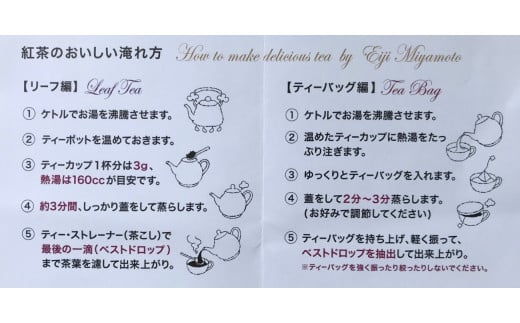 紅茶のおいしい淹れ方 How to make delicious tea by Eiji Miyamoto
【リーフ編】 Leaf Tea
① ケトルでお湯を沸騰させます。
② ティーポットを温めておきます。
③ ティーカップ1杯分は3g、
熱湯は160ccが目安です。
④ 約3分間、しっかり蓋をして蒸らします。
⑤ ティー・ストレーナー(茶こし)で
最後の一滴(ベストドロップ)
まで茶葉を濾して出来上がり。
【ティーバッグ編】 Tea Bag
① ケトルでお湯を沸騰させます。
② 温めたティーカップに熱湯をたっ
ぷり注ぎます。
③ ゆっくりとティーバッグを入れます。
④ 蓋をして2分〜3分蒸らします。
(お好みで調節してください)
⑤ ティーバッグを持ち上げ、軽く振って、
ベストドロップを抽出して出来上がり。
※ティーバッグを強く振ったり絞ったりしないでください。